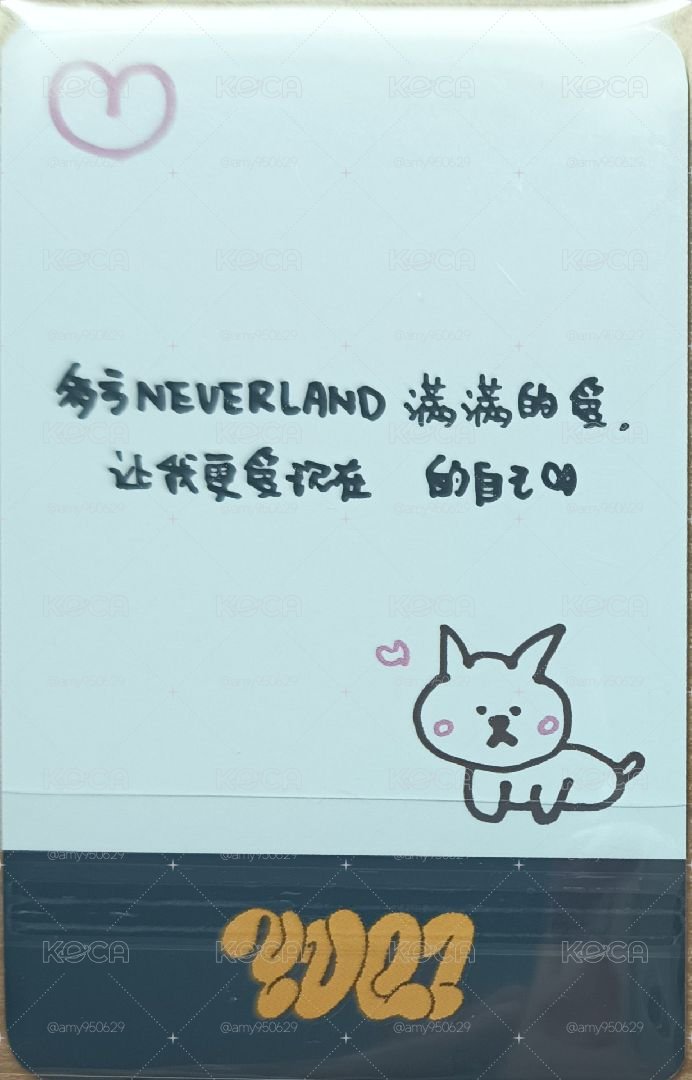 多亏NEVERLAND 满满的爱.
让我更爱现在 的自己
YUQI
KOCA
@amy950629